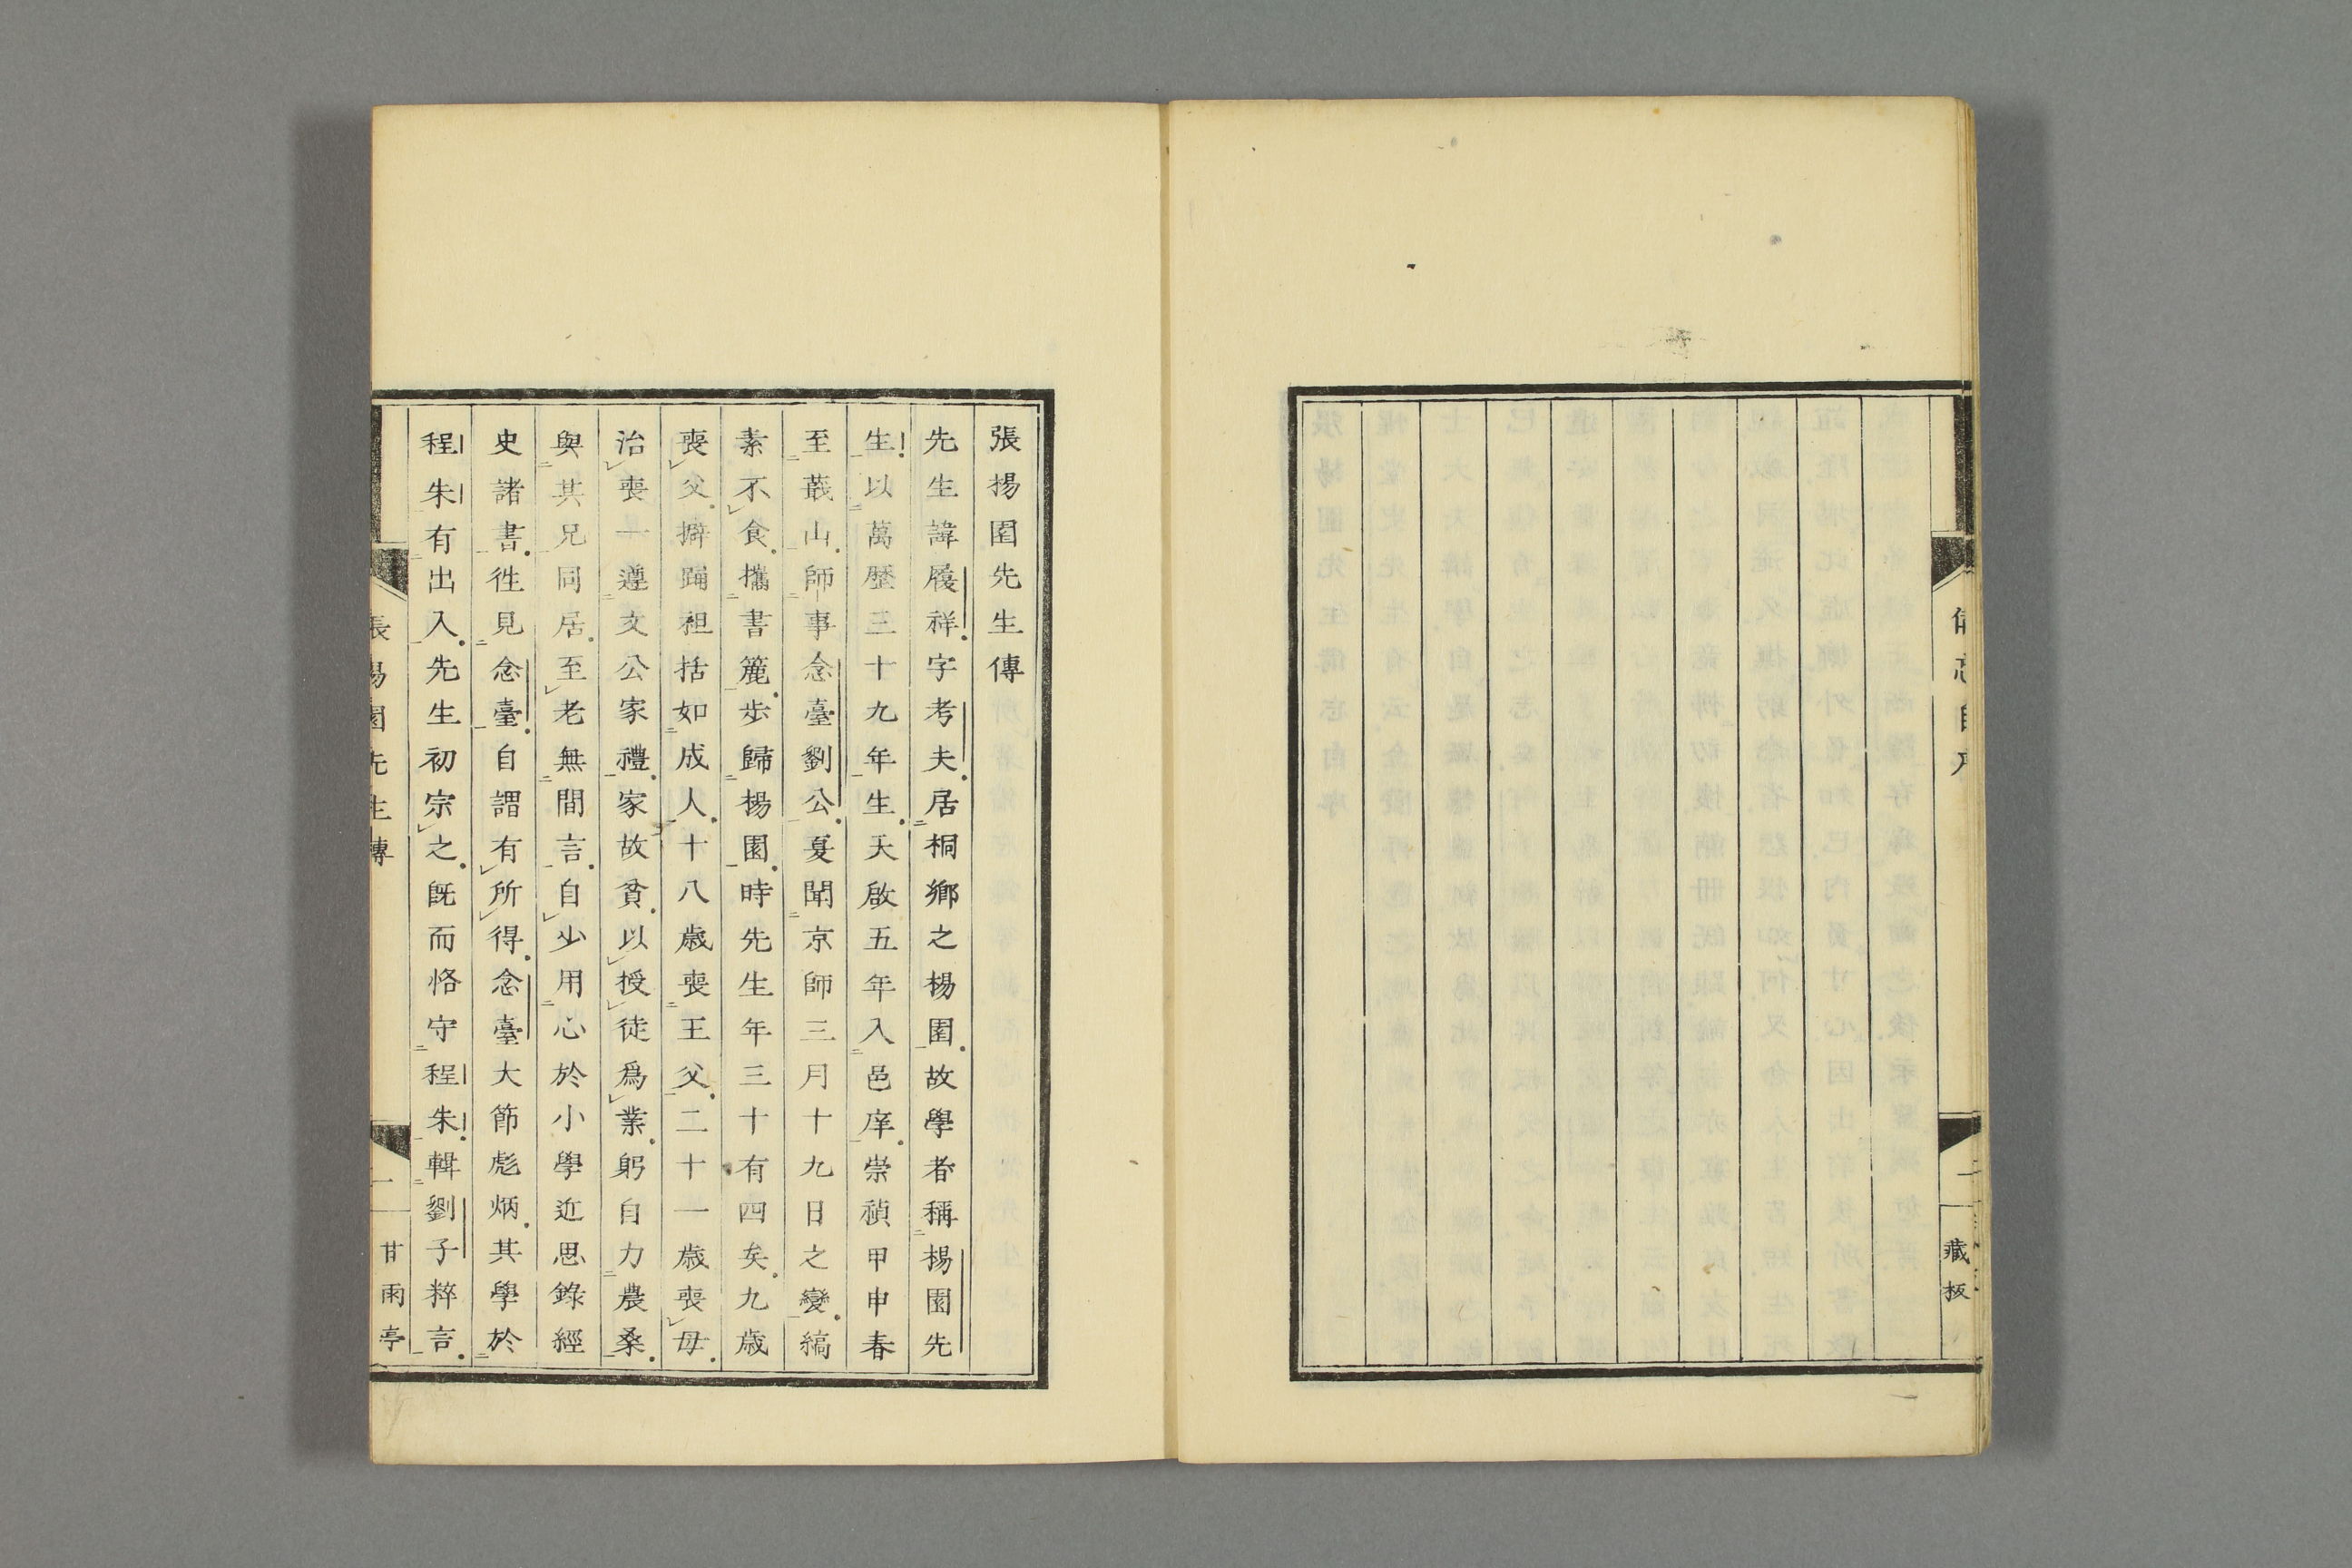 藏板
張楊園先生傳
先生諱履祥字考夫居桐鄉之楊園故學者稱楊園先
生以萬歷三十九年生天啟五年入邑庠崇禎甲申春
至蕺山師事念臺劉公夏聞京師三月十九日之變縞
素不食攜書簏步歸楊園時先生年三十有四矣九歲
喪父擗踊袒括如成人十八歲喪王父二十一歲喪母
治喪一遵文公家禮家故貧以授徒爲業躬自力農桑
與其兄同居至老無間言自少用心於小學近思錄經
史諸書徃見念臺自謂有所得念臺大節彪炳其學於
程朱有出入先生初宗之旣而恪守程朱輯劉子粹言
張楊園先生傳 一 甘雨亭